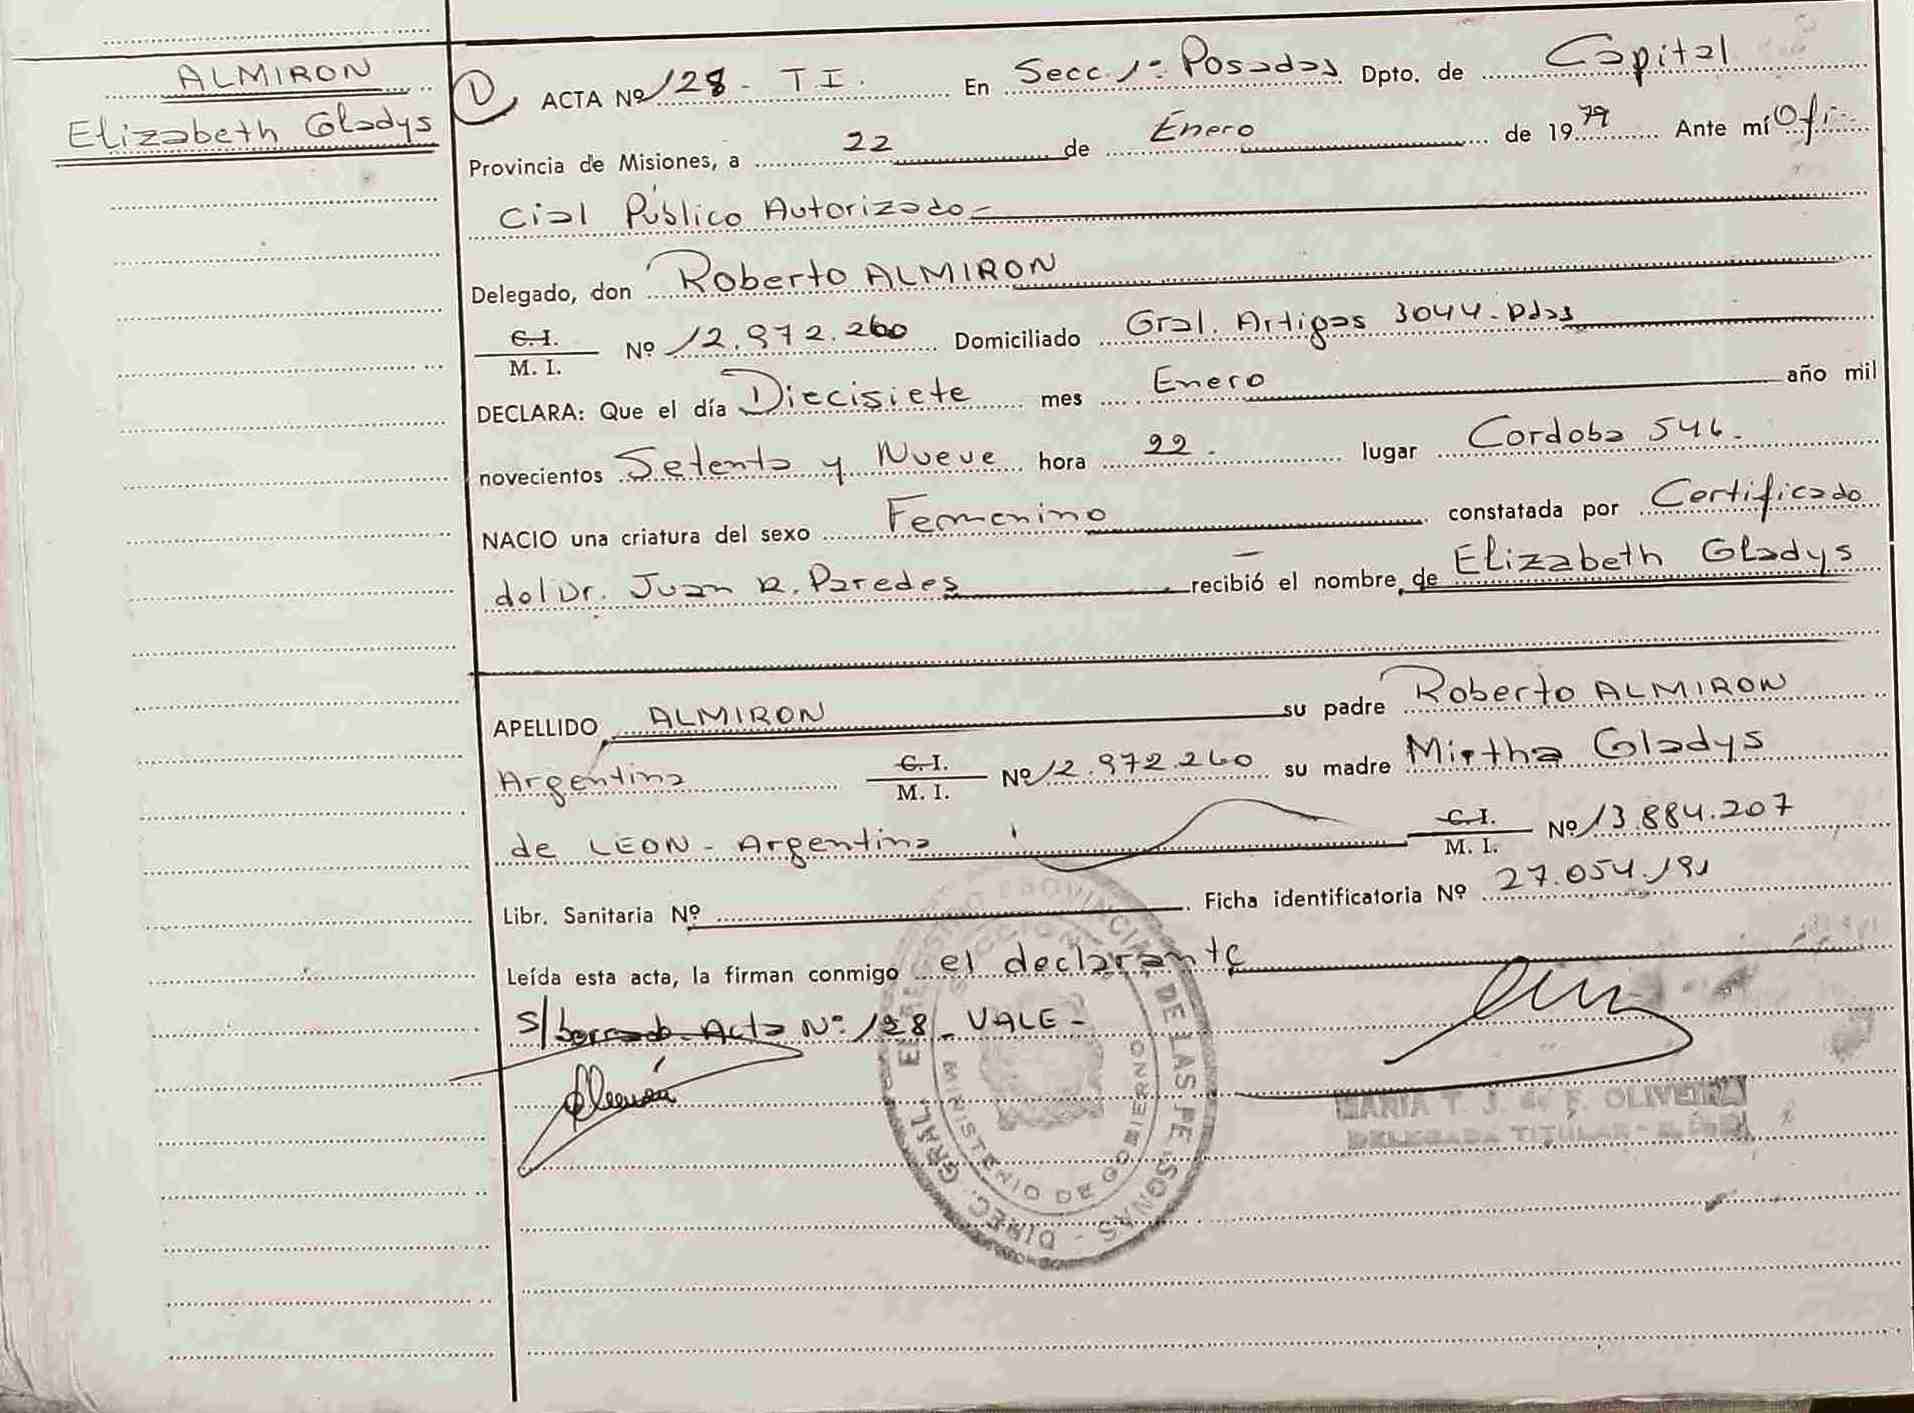 ALMIRON
Elizabeth Gladys
ACTA Nº 128 - T.I. En Secc. 1ª Posadas Dpto. de Capital
Provincia de Misiones, a 22 de Enero de 1979 Ante mí Ofi-
cial Público Autorizado -
Delegado, don Roberto ALMIRON
C.I. / M. I. Nº 12.972.260 Domiciliado Gral. Artigas 3044 - Pdas
DECLARA: Que el día Diecisiete mes Enero año mil
novecientos Setenta y Nueve hora 22. lugar Cordoba 546.
NACIO una criatura del sexo Femenino constatada por Certificado
del Dr. Juan R. Paredes recibió el nombre de Elizabeth Gladys
APELLIDO ALMIRON su padre Roberto ALMIRON
Argentino C.I. / M. I. Nº 12.972.260 su madre Mirtha Gladys
de LEON - Argentina C.I. / M. I. Nº 13.884.207
Libr. Sanitaria Nº Ficha identificatoria Nº 27.054.191
Leída esta acta, la firman conmigo el declarante
S/borrado Acta Nº 128 - VALE -
DIREC. GRAL. REGISTRO PROVINCIAL DE LAS PERSONAS
MINISTERIO DE GOBIERNO
MARIA T. J. de F. OLIVEIRA
DELEGADA TITULAR